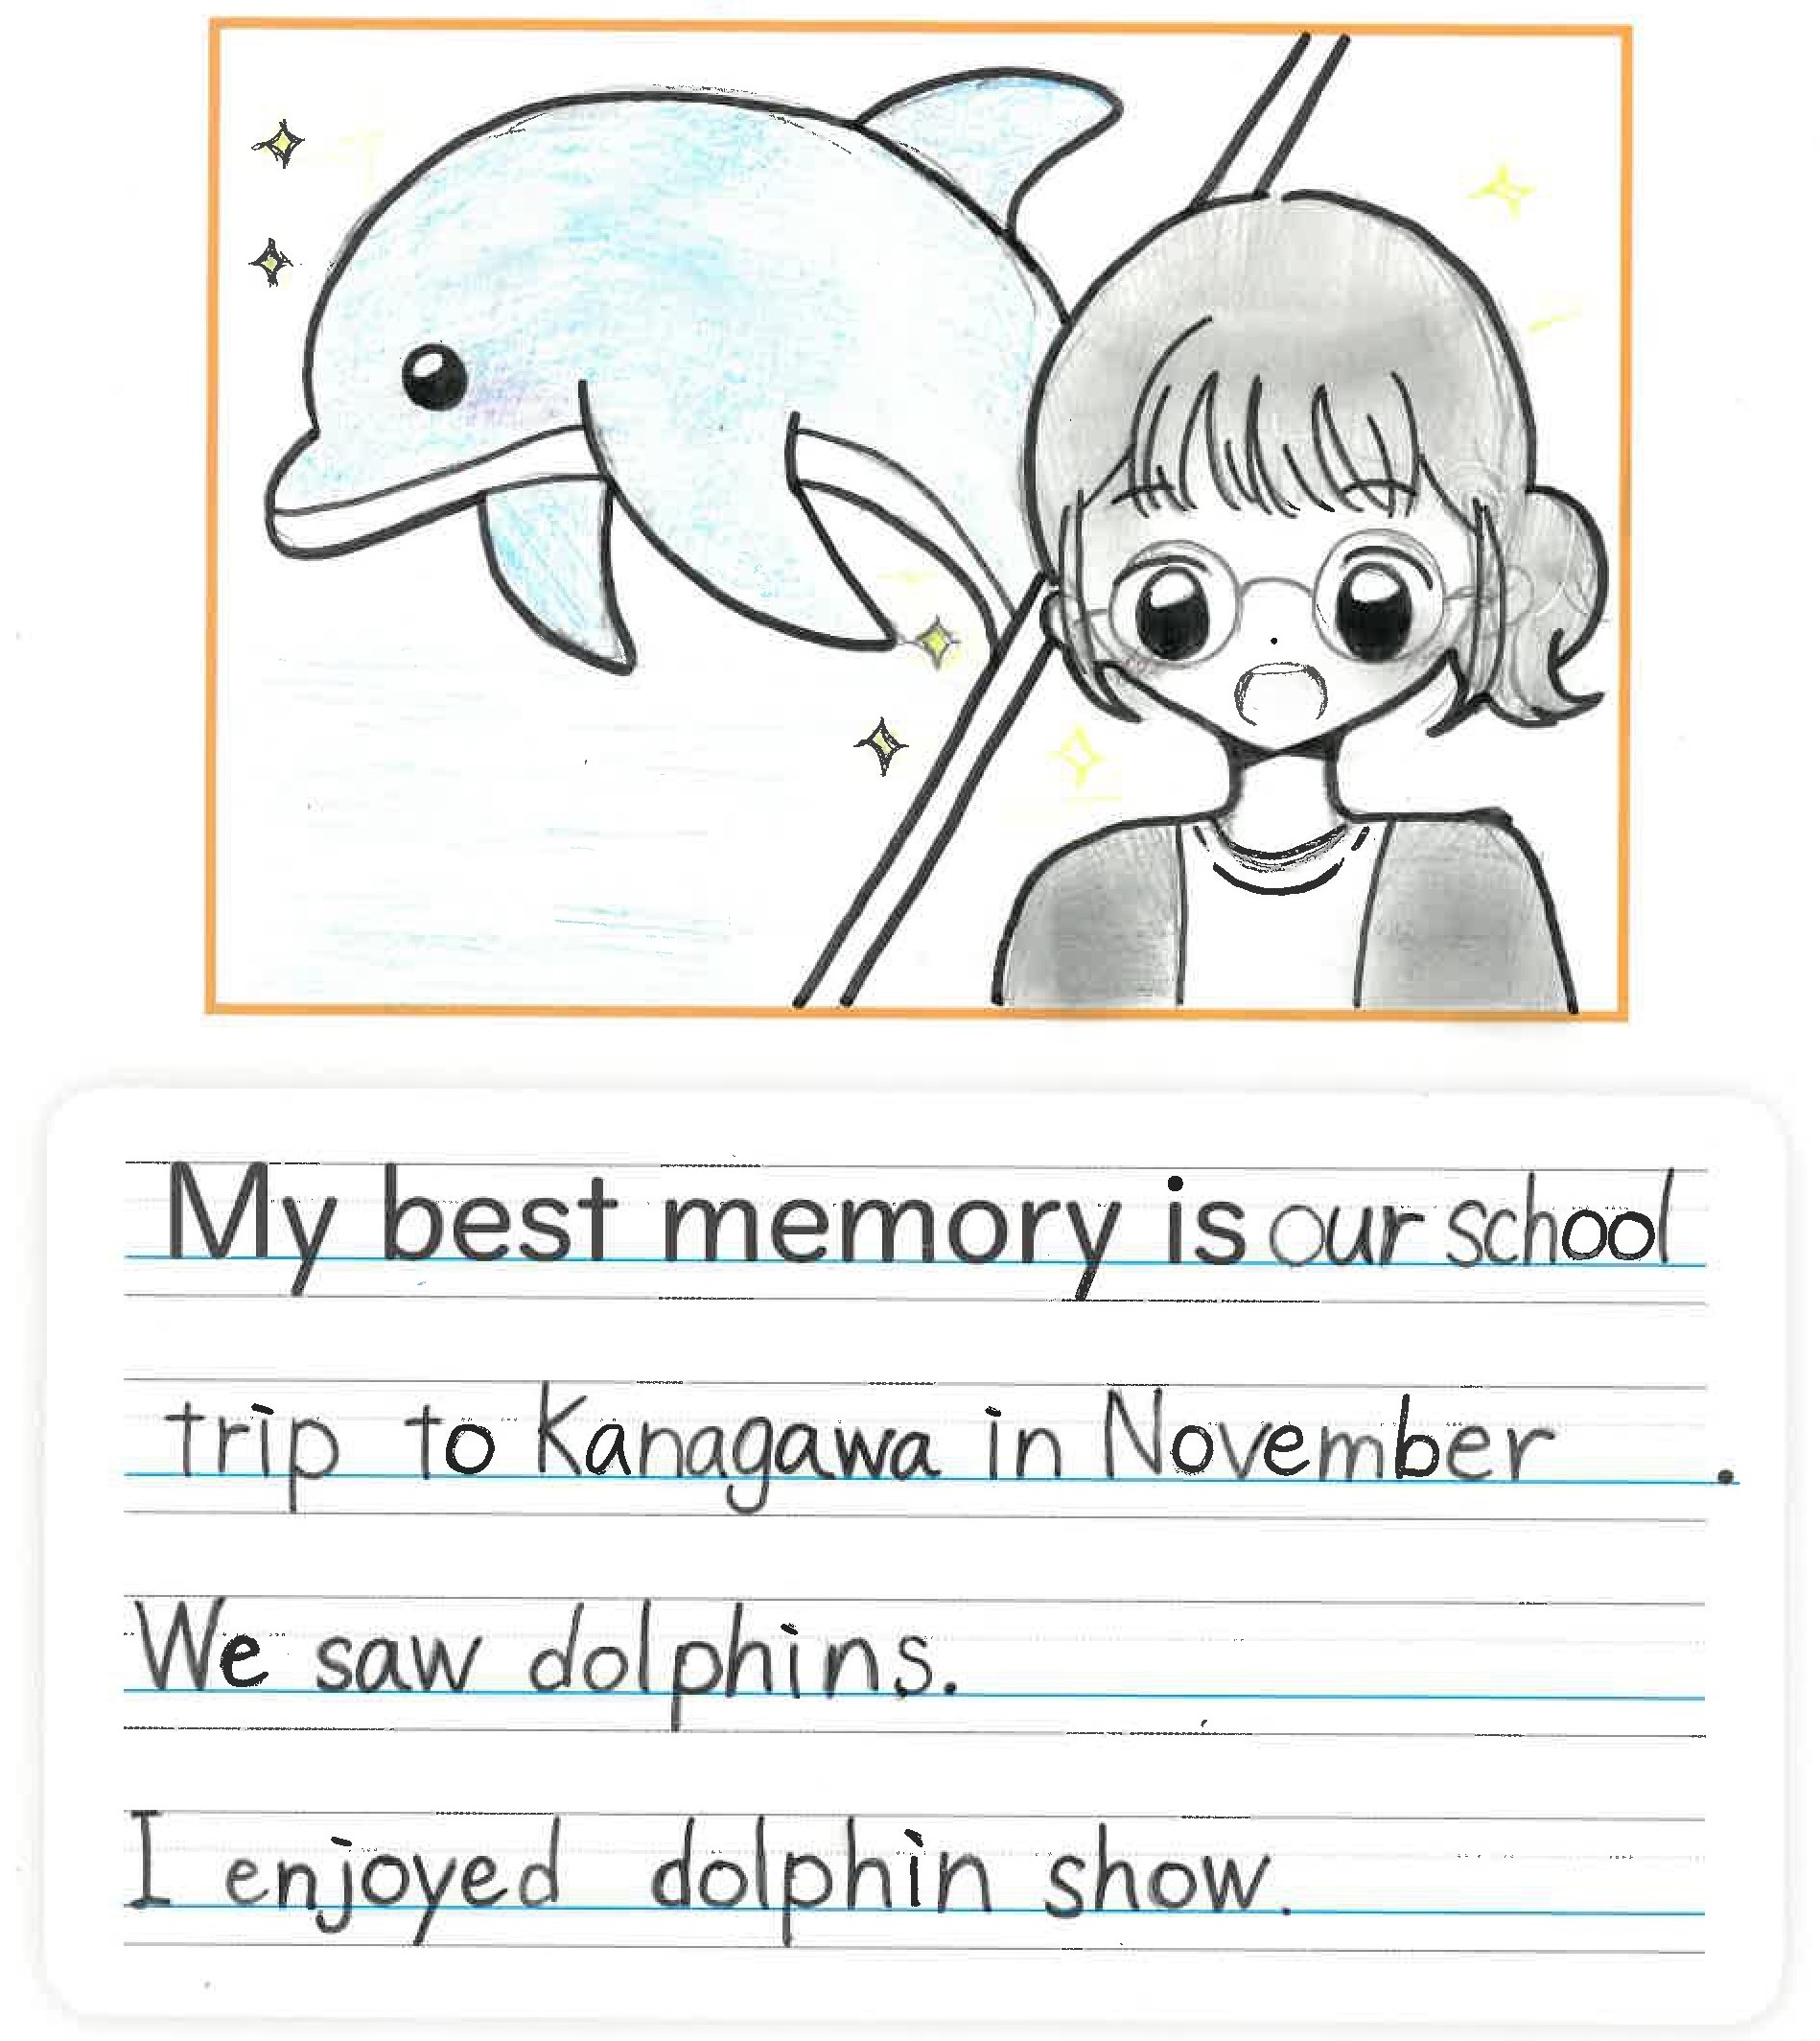 My best memory is our school
trip to Kanagawa in November .
We saw dolphins.
I enjoyed dolphin show.